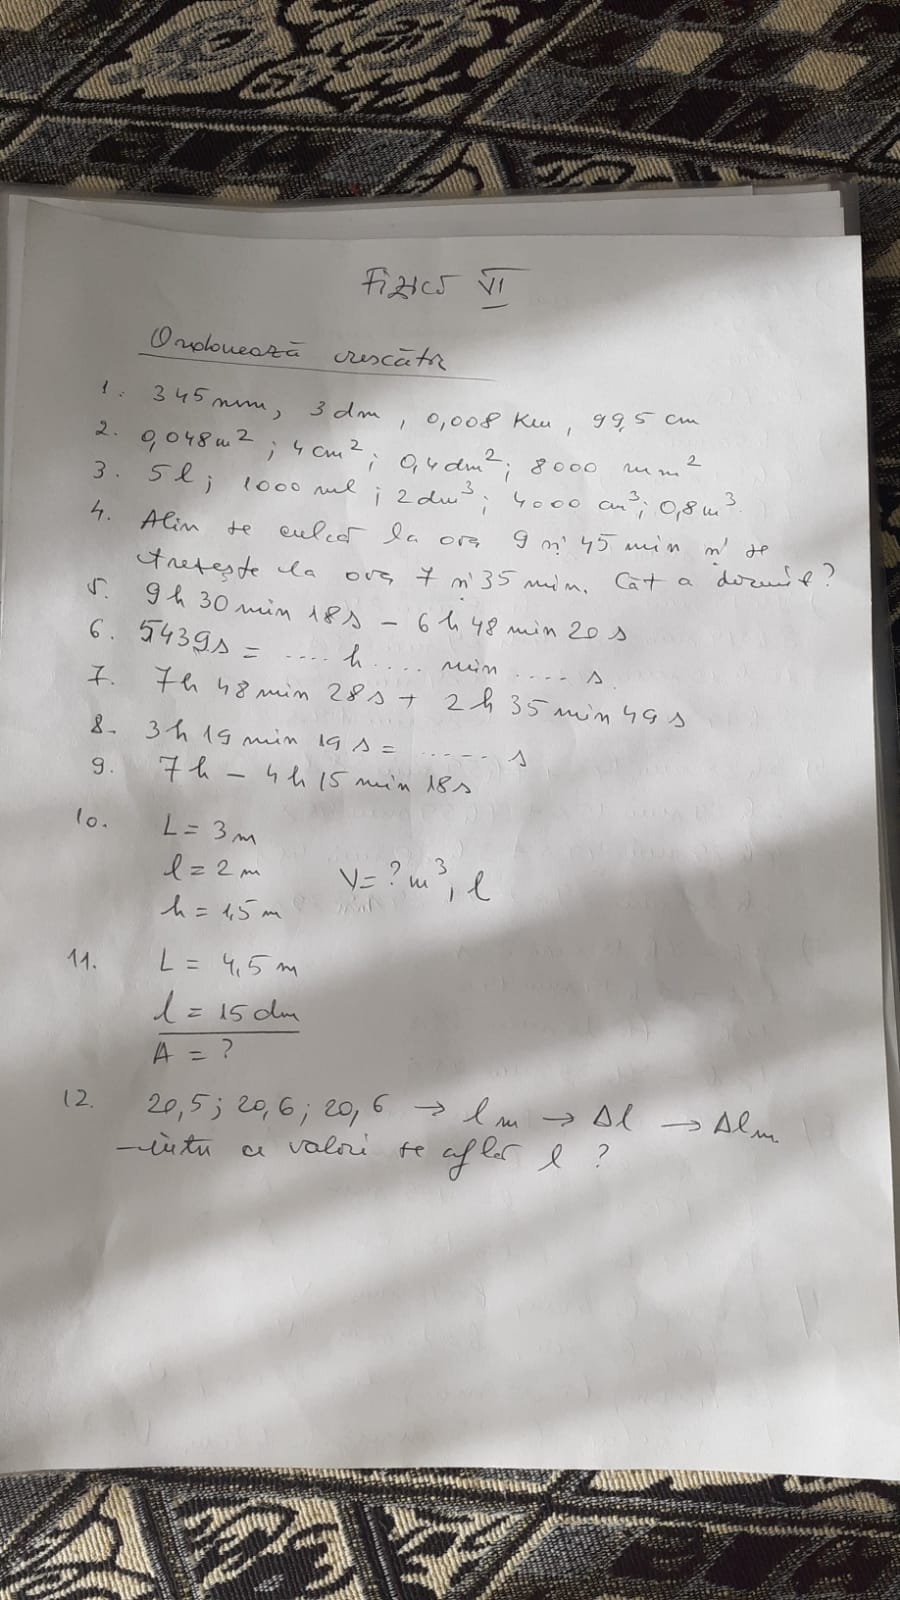 Fizică VI
Ordonează crescător
1. 345 mm, 3 dm, 0,008 Km, 99,5 cm
2. 0,048 m²; 4 cm²; 0,4 dm²; 8000 mm²
3. 5 l; 1000 ml; 2 dm³; 4000 cm³; 0,8 m³
4. Alin se culcă la ora 9 și 45 min și se
trezește la ora 7 și 35 min. Cât a dormit?
5. 9 h 30 min 18 s - 6 h 48 min 20 s
6. 5439 s = .... h .... min .... s
7. 7h 48 min 28 s + 2 h 35 min 49 s
8. 3h 19 min 19 s = ..... s
9. 7 h - 4 h 15 min 18 s
10. L = 3 m
l = 2 m V = ? m³, l
h = 1,5 m
11. L = 4,5 m
l = 15 dm
A = ?
12. 20,5; 20,6; 20,6 → lm → Δl → Δlm
- între ce valori se află l ?